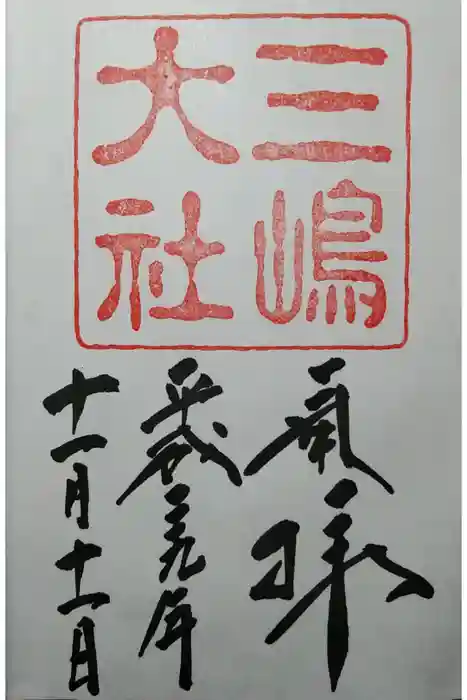 三嶋
大社
奉拝
平成二九年
十一月十一日